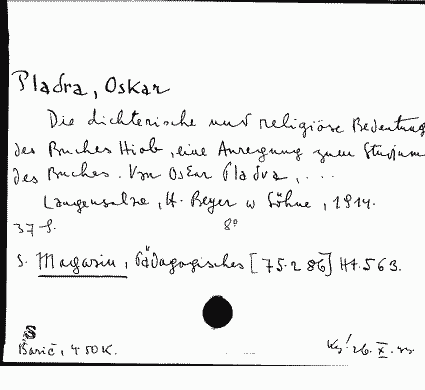 Pladra, Oskar
Die dichterische und religiöse Bedeutung
des Buches Hiob, eine Anregung zum Studium
des Buches. Von Oskar Pladra, ...
Langensalza, H. Beyer u Söhne, 1914.
37 S. 8°
S. Magazin, Pädagogisches [75.286] Ht. 563.
S
Barić, 450K.
26. X.